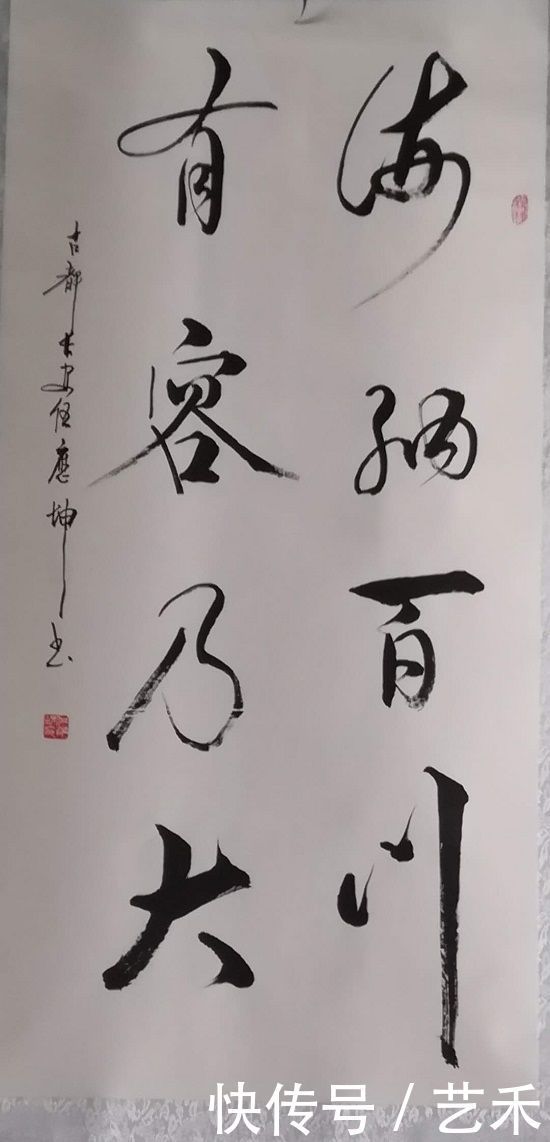 海纳百川
有容乃大
古都长安任應坤书
快传号/艺禾